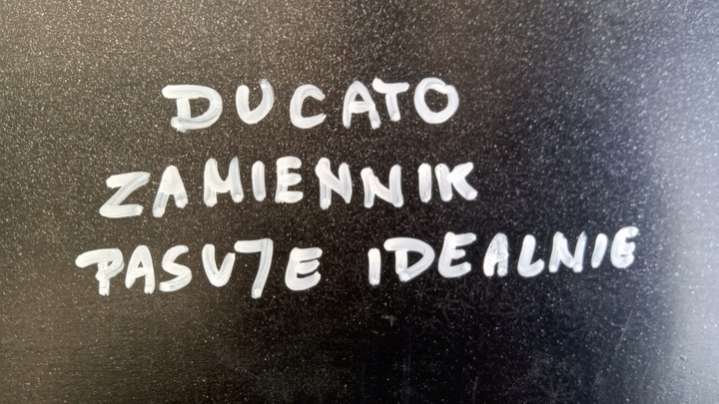 DUCATO
ZAMIENNIK
PASUJE IDEALNIE